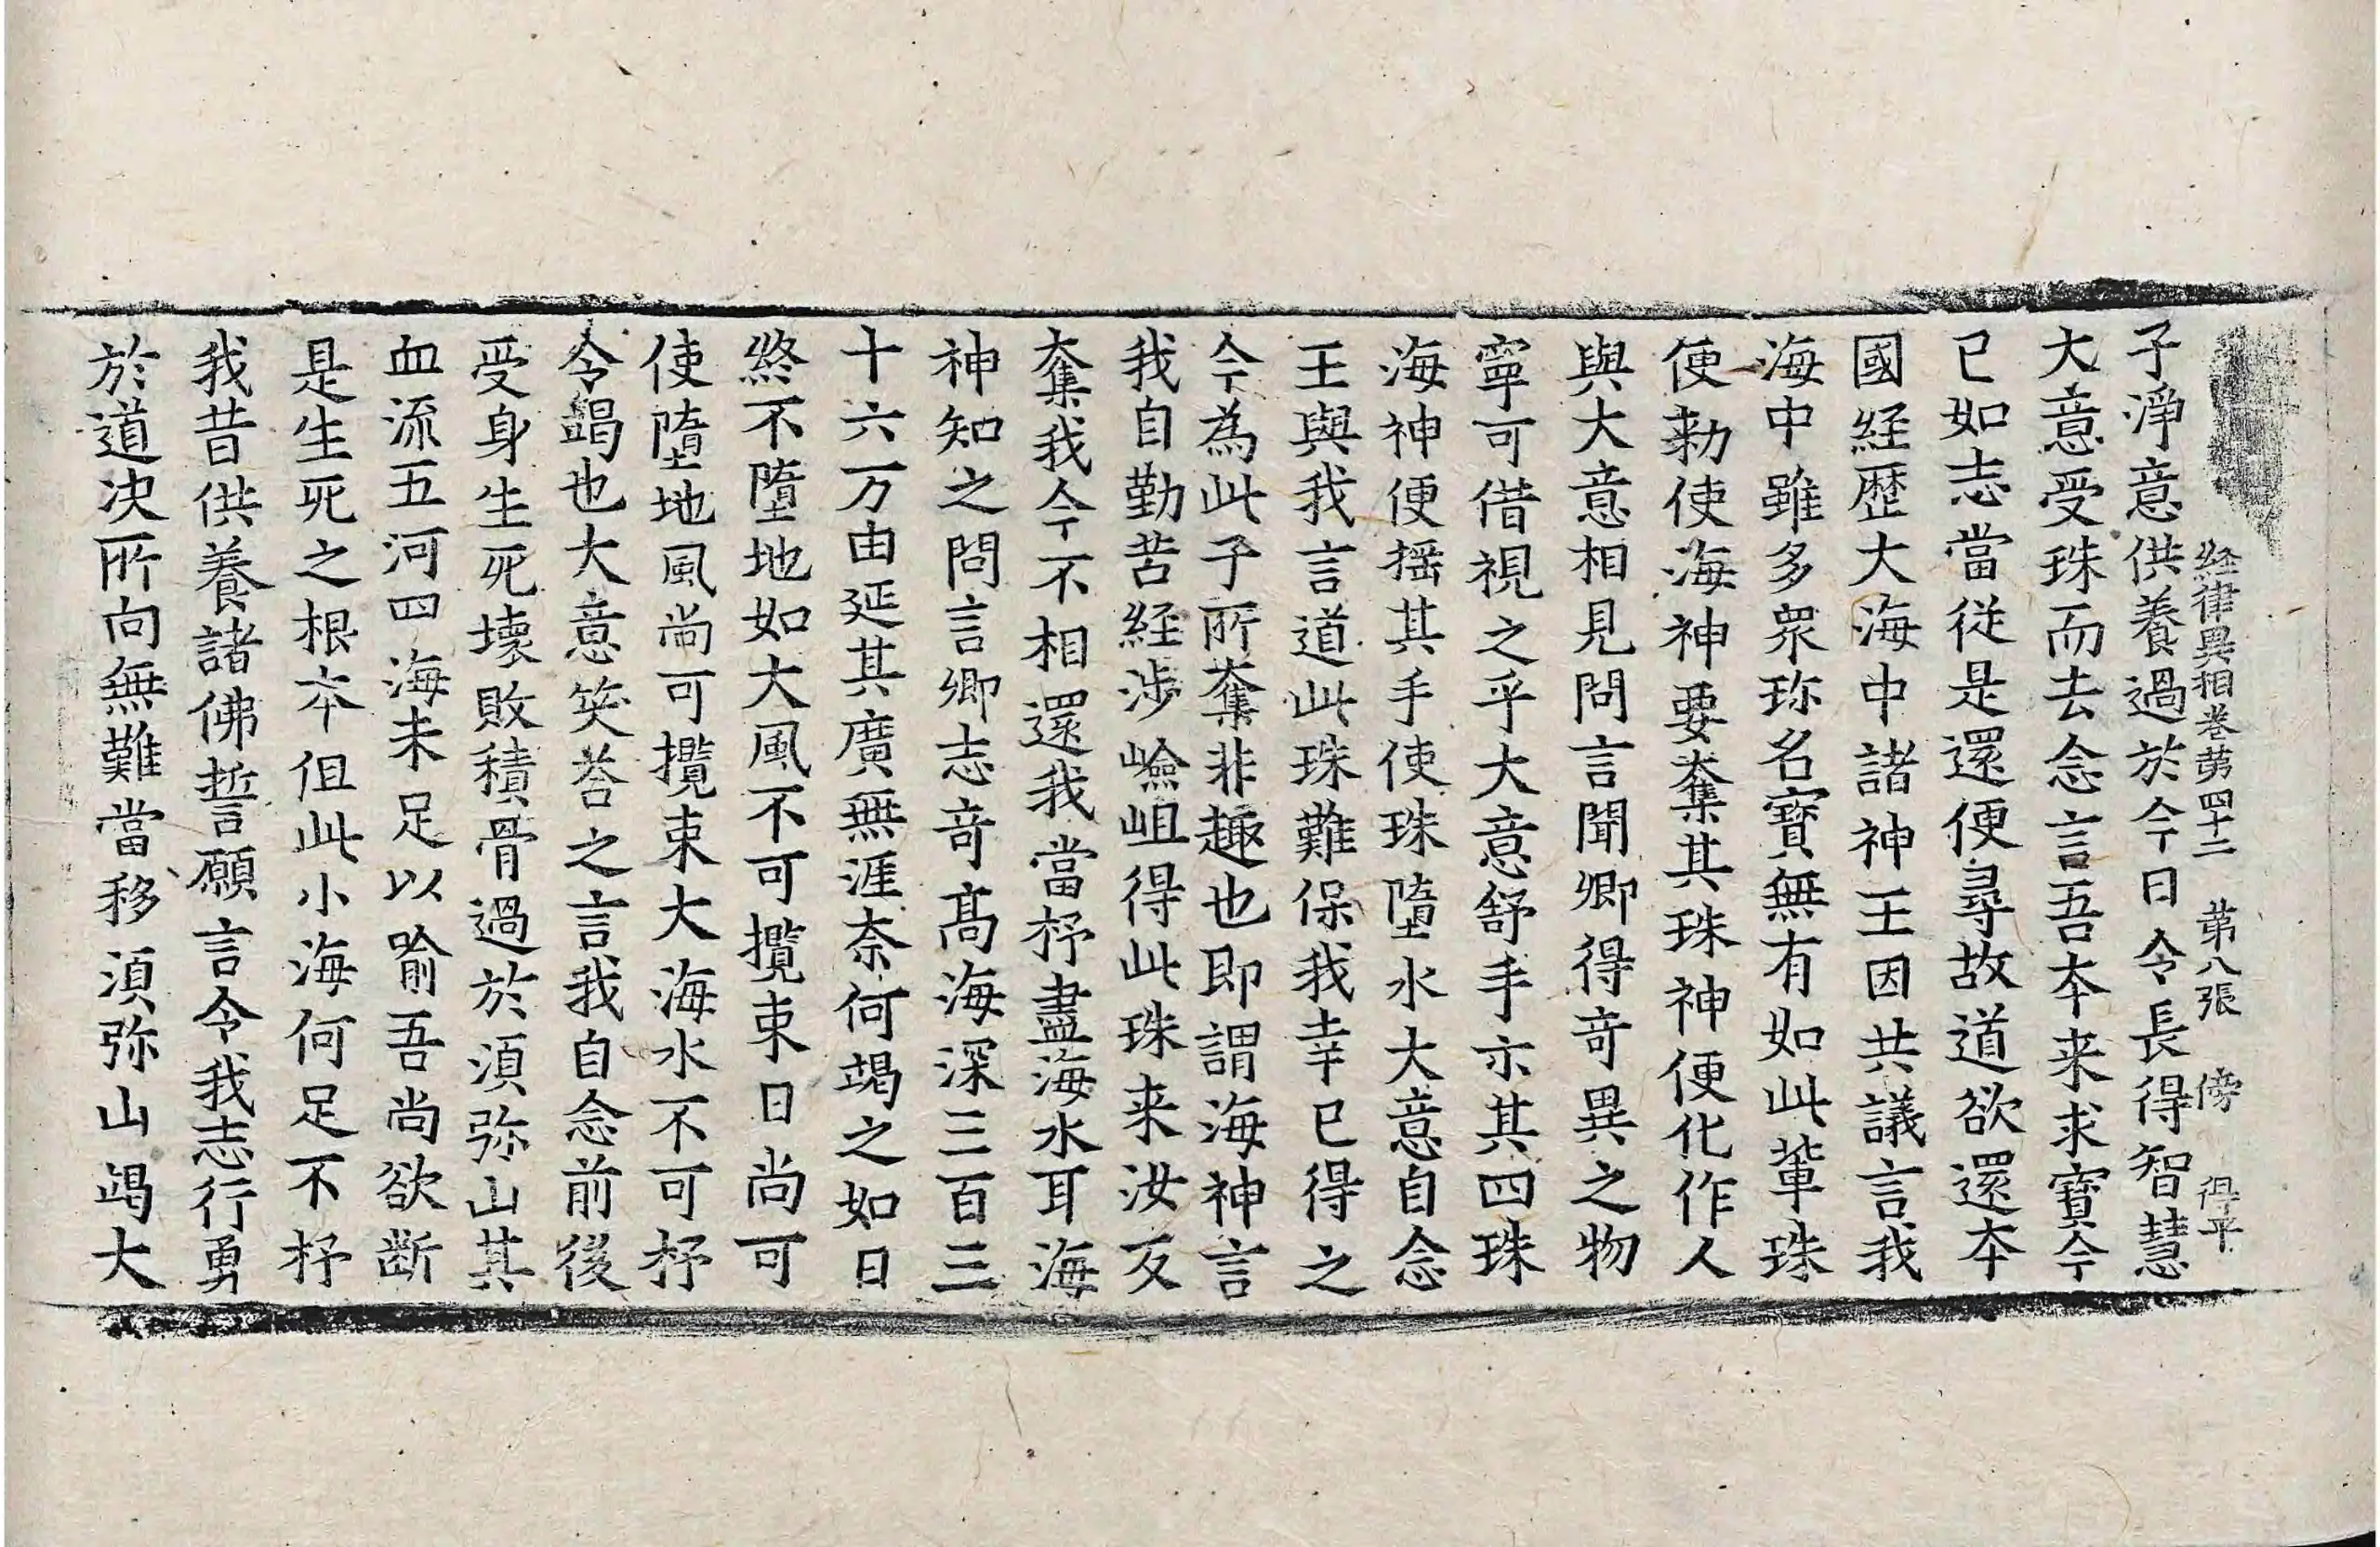 経律異相巻第四十二 第八張 傍 得平
子淨意供養過於今日令長得智慧
大意受珠而去念言吾本来求寶今
已如志當從是還便尋故道欲還本
國経歴大海中諸神王因共議言我
海中雖多眾珎名寶無有如此輩珠
便勑使海神要奪其珠神便化作人
與大意相見問言聞卿得竒異之物
寧可借視之乎大意舒手示其四珠
海神便揺其手使珠墮水大意自念
王與我言道此珠難保我幸已得之
今為此子所奪非趣也即謂海神言
我自勤苦経涉嶮岨得此珠来汝反
奪我今不相還我當抒盡海水耳海
神知之問言卿志竒髙海深三百三
十六万由延其廣無涯奈何竭之如日
終不墮地如大風不可攬束日尚可
使墮地風尚可攬束大海水不可抒
令竭也大意笑荅之言我自念前後
受身生死壞敗積骨過於湏弥山其
血流五河四海未足以喻吾尚欲断
是生死之根本但此小海何足不抒
我昔供養諸佛誓願言令我志行勇
於道决所向無難當移湏弥山竭大